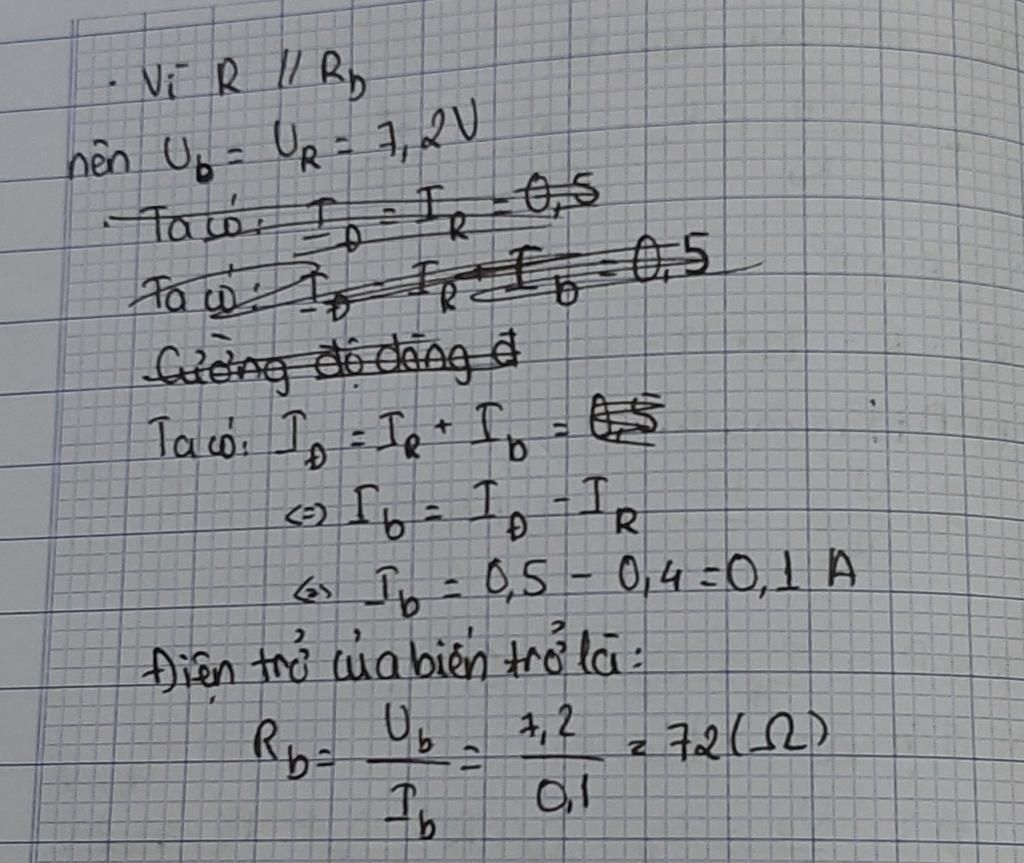 . Vì R // Rb
nên Ub = UR = 7,2V
. Ta có: IĐ = IR = 0,5
Ta có: IĐ = IR + Ib = 0,5
Cường độ dòng đ
Ta có: IĐ = IR + Ib = 0,5
<=> Ib = IĐ - IR
<=> Ib = 0,5 - 0,4 = 0,1 A
Điện trở của biến trở là:
Rb = Ub/Ib = 7,2/0,1 = 72 (Ω)